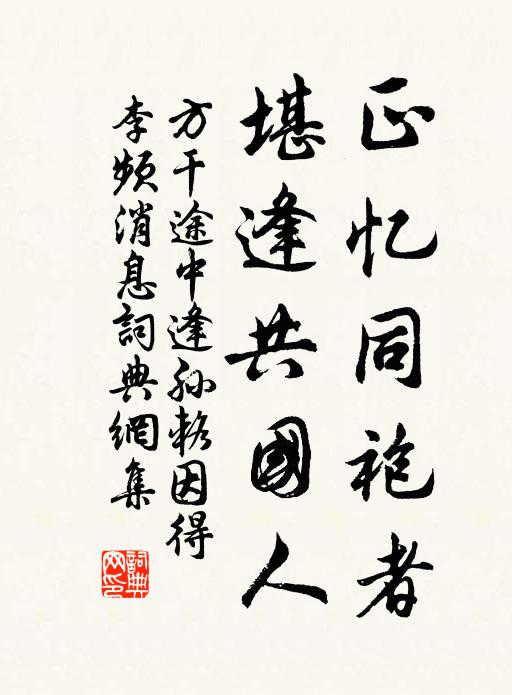 正忆同袍者
堪逢共國人
方干途中逢孙輅因得
李频消息詞典網集
詞典
网印